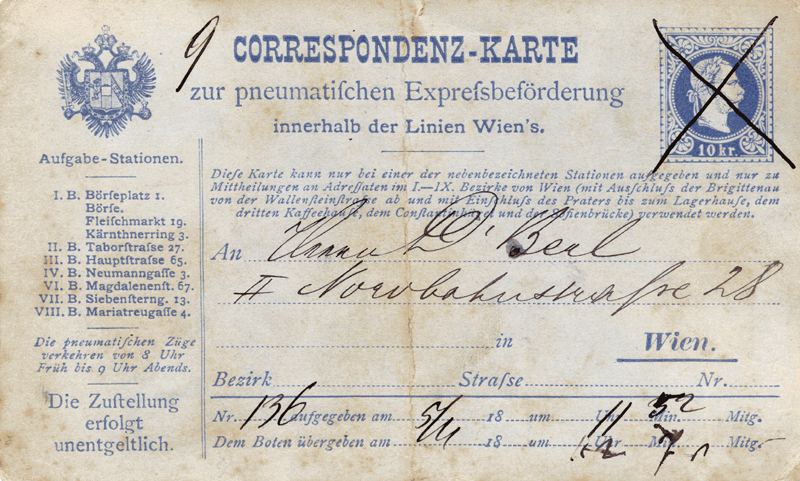 9
CORRESPONDENZ-KARTE
zur pneumatiſchen Expreſsbeförderung
innerhalb der Linien Wien's.
10 kr.
Aufgabe-Stationen.
I. B. Börſeplatz 1.
Börſe.
Fleiſchmarkt 19.
Kärnthnerring 3.
II. B. Taborſtraſse 27.
III. B. Hauptſtraſse 65.
IV. B. Neumanngaſſe 3.
VI. B. Magdalenenſt. 67.
VII. B. Siebenſterng. 13.
VIII. B. Mariatreugaſſe 4.
Die pneumatiſchen Züge
verkehren von 8 Uhr
Früh bis 9 Uhr Abends.
Die Zuſtellung
erfolgt
unentgeltlich.
Dieſe Karte kann nur bei einer der nebenbezeichneten Stationen aufgegeben und nur zu
Mittheilungen an Adreſſaten im I.—IX. Bezirke von Wien (mit Ausſchluſs der Brigittenau
von der Wallenſteinſtraſse ab und mit Einſchluſs des Praters bis zum Lagerhauſe, dem
dritten Kaffeehauſe, dem Conſtantinhügel und der Sofienbrücke) verwendet werden.
An Herrn Dr Berl
II Nordbahnstraſse 28
in Wien.
Bezirk Straſse Nr.
Nr. 136 aufgegeben am 5/11 18 um 11 Uhr 52 Min. Mitg.
Dem Boten übergeben am 5/11 18 um Uhr Min. Mitg.